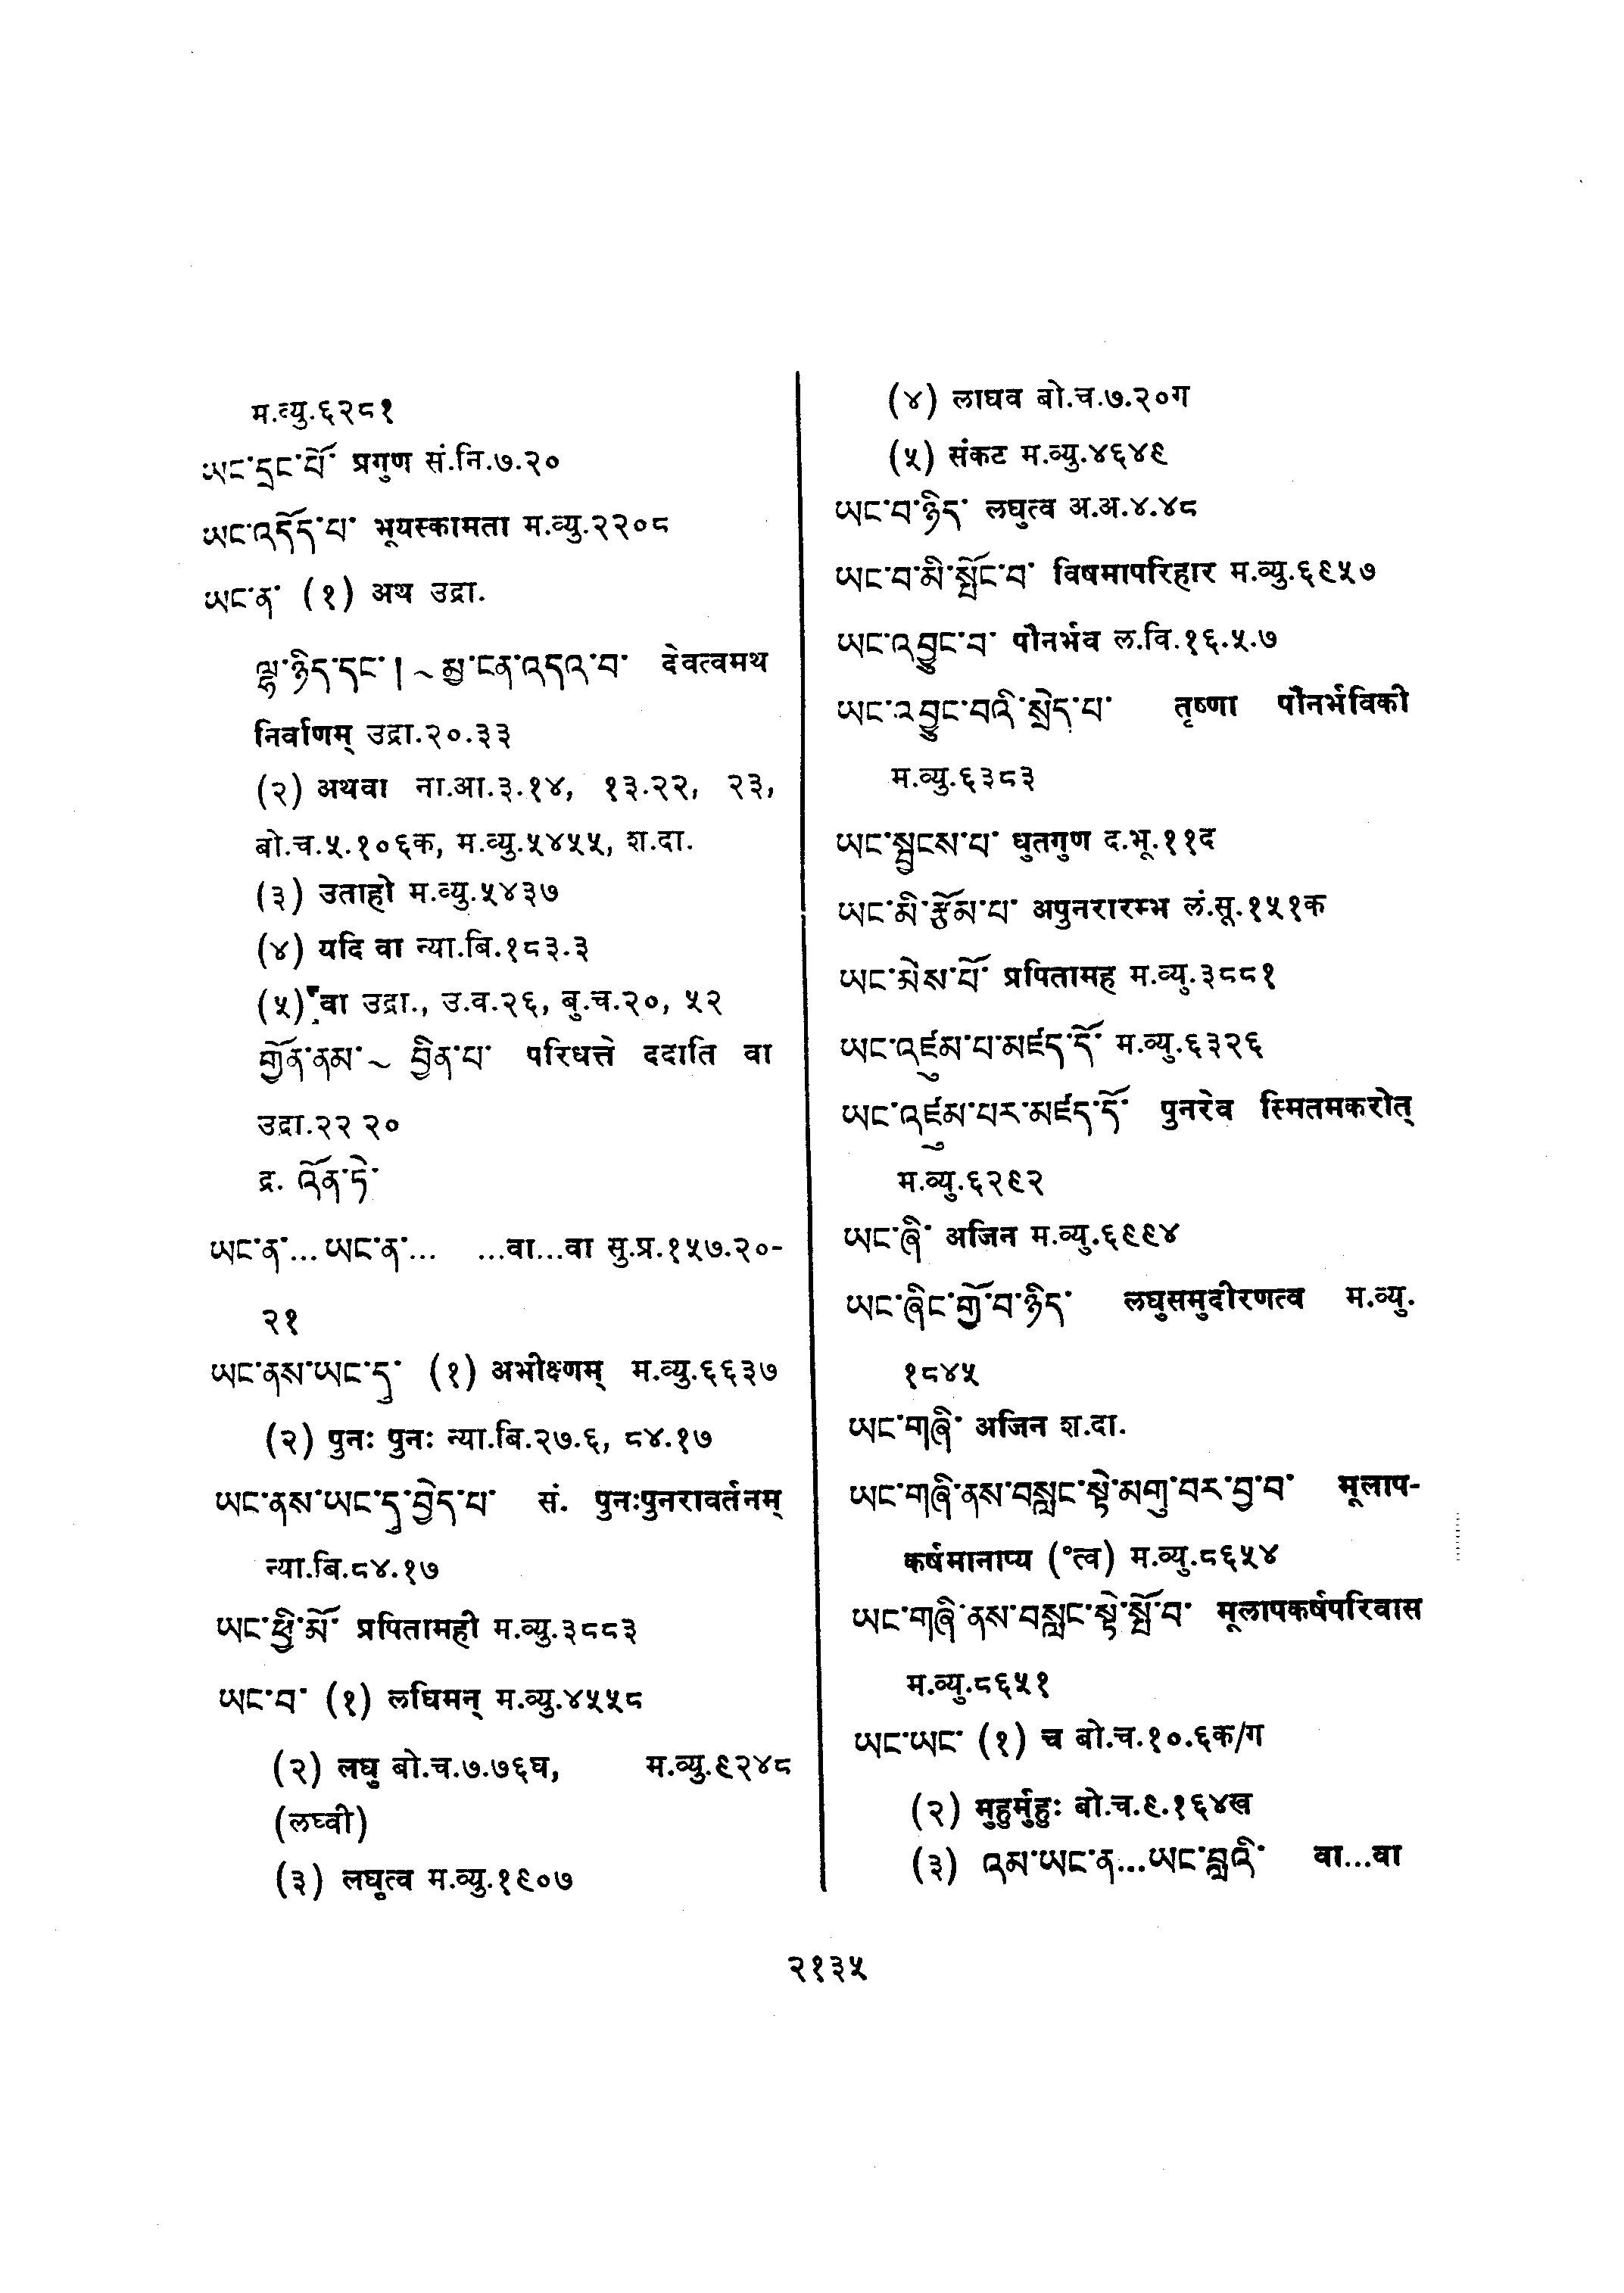 म.व्यु.६२८१
ཡང་དྲང་པོ་ प्रगुण सं.नि.७.२०
ཡང་འདོད་པ་ भूयस्कामता म.व्यु.२२०८
ཡང་ན་ (१) अथ उद्रा.
ལྷ་ཉིད་དང་། ~ མྱ་ངན་འདའ་བ་ देवत्वमथ
निर्वाणम् उद्रा.२०.३३
(२) अथवा ना.आ.३.१४, १३.२२, २३,
बो.च.५.१०६क, म.व्यु.५४५५, श.दा.
(३) उताहो म.व्यु.५४३७
(४) यदि वा न्या.बि.१८३.३
(५) वा उद्रा., उ.व.२६, बु.च.२०, ५२
གྱོན་ནམ་ ~ བྱིན་པ་ परिधत्ते ददाति वा
उद्रा.२२ २०
द्र. འོན་ཏེ་
ཡང་ན་... ཡང་ན་... ...वा...वा सु.प्र.१५७.२०-
२१
ཡང་ནས་ཡང་དུ་ (१) अभीक्ष्णम् म.व्यु.६६३७
(२) पुनः पुनः न्या.बि.२७.६, ८४.१७
ཡང་ནས་ཡང་དུ་བྱེད་པ་ सं. पुनःपुनरावर्तनम्
न्या.बि.८४.१७
ཡང་ཕྱི་མོ་ प्रपितामही म.व्यु.३८८३
ཡང་བ་ (१) लघिमन् म.व्यु.४५५८
(२) लघु बो.च.७.७६घ, म.व्यु.९२४८
(लघ्वी)
(३) लघुत्व म.व्यु.१९०७
(४) लाघव बो.च.७.२०ग
(५) संकट म.व्यु.४६४९
ཡང་བ་ཉིད་ लघुत्व अ.अ.४.४८
ཡང་བ་མི་སྤོང་བ་ विषमापरिहार म.व्यु.६९५७
ཡང་འབྱུང་བ་ पौनर्भव ल.वि.१६.५.७
ཡང་འབྱུང་བའི་སྲེད་པ་ तृष्णा पौनर्भविकी
म.व्यु.६३८३
ཡང་སྦྱངས་པ་ धुतगुण द.भू.११द
ཡང་མི་རྩོམ་པ་ अपुनरारम्भ लं.सू.१५१क
ཡང་མེས་པོ་ प्रपितामह म.व्यु.३८८१
ཡང་འཛུམ་པ་མཛད་དོ་ म.व्यु.६३२६
ཡང་འཛུམ་པར་མཛད་དོ་ पुनरेव स्मितमकरोत्
म.व्यु.६२९२
ཡང་ཞི་ अजिन म.व्यु.६९९४
ཡང་ཞིང་གྱོ་བ་ཉིད་ लघुसमुदीरणत्व म.व्यु.
१८४५
ཡང་གཞི་ अजिन श.दा.
ཡང་གཞི་ནས་བསླང་སྟེ་མགུ་བར་བྱ་བ་ मूलाप-
कर्षमानाप्य (°त्व) म.व्यु.८६५४
ཡང་གཞི་ནས་བསླང་སྟེ་སྤོ་བ་ मूलापकर्षपरिवास
म.व्यु.८६५१
ཡང་ཡང་ (१) च बो.च.१०.६क/ग
(२) मुहुर्मुहुः बो.च.९.१६४ख
(३) འམ་ཡང་ན...ཡང་བླའི་ वा...वा
२१३५